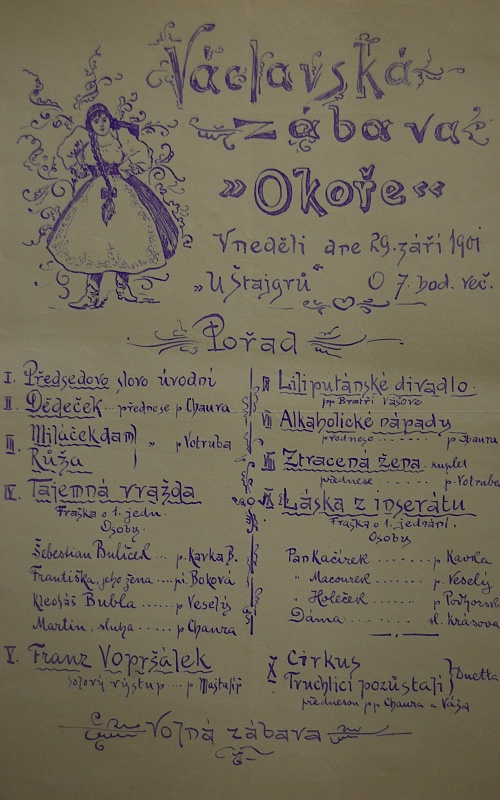 Václavská
zábava
»Okoře«
V neděli dne 29. září 1901
„U Štajgrů“ O 7. hod. več.
Pořad
I. Předsedovo slovo úvodní
II. Dědeček .. přednese p. Chaura
III. Miláček dam
Růža " p Votruba
IV. Tajemná vražda
Fraška o 1. jedn.
Osoby.
Šebestian Bulíček ... p. Kavka B.
Františka, jeho žena ... pí. Boková
Kleofáš Bubla ..... p Veselý
Martin, sluha .... p Chaura
V. Franz Vopršálek
solový výstup ... p
VI Liliputánské divadlo.
pp Bratři Vášové
VII Alkaholické nápady
přednese ....... p Chaura
VIII Ztracená žena. kuplet
přednese ....... p. Votruba
IX Láska z inserátu
Fraška o 1. jednání.
Osoby
Pan Kačírek ........ p Kavka
" Macourek ....... p Veselý
" Holeček ........ p Podhorský
Dáma ............ sl. Krásova
X. Cirkus
Truchlící pozůstalí } Duetta
přednesou pp Chaura a Váša
Volná zábava